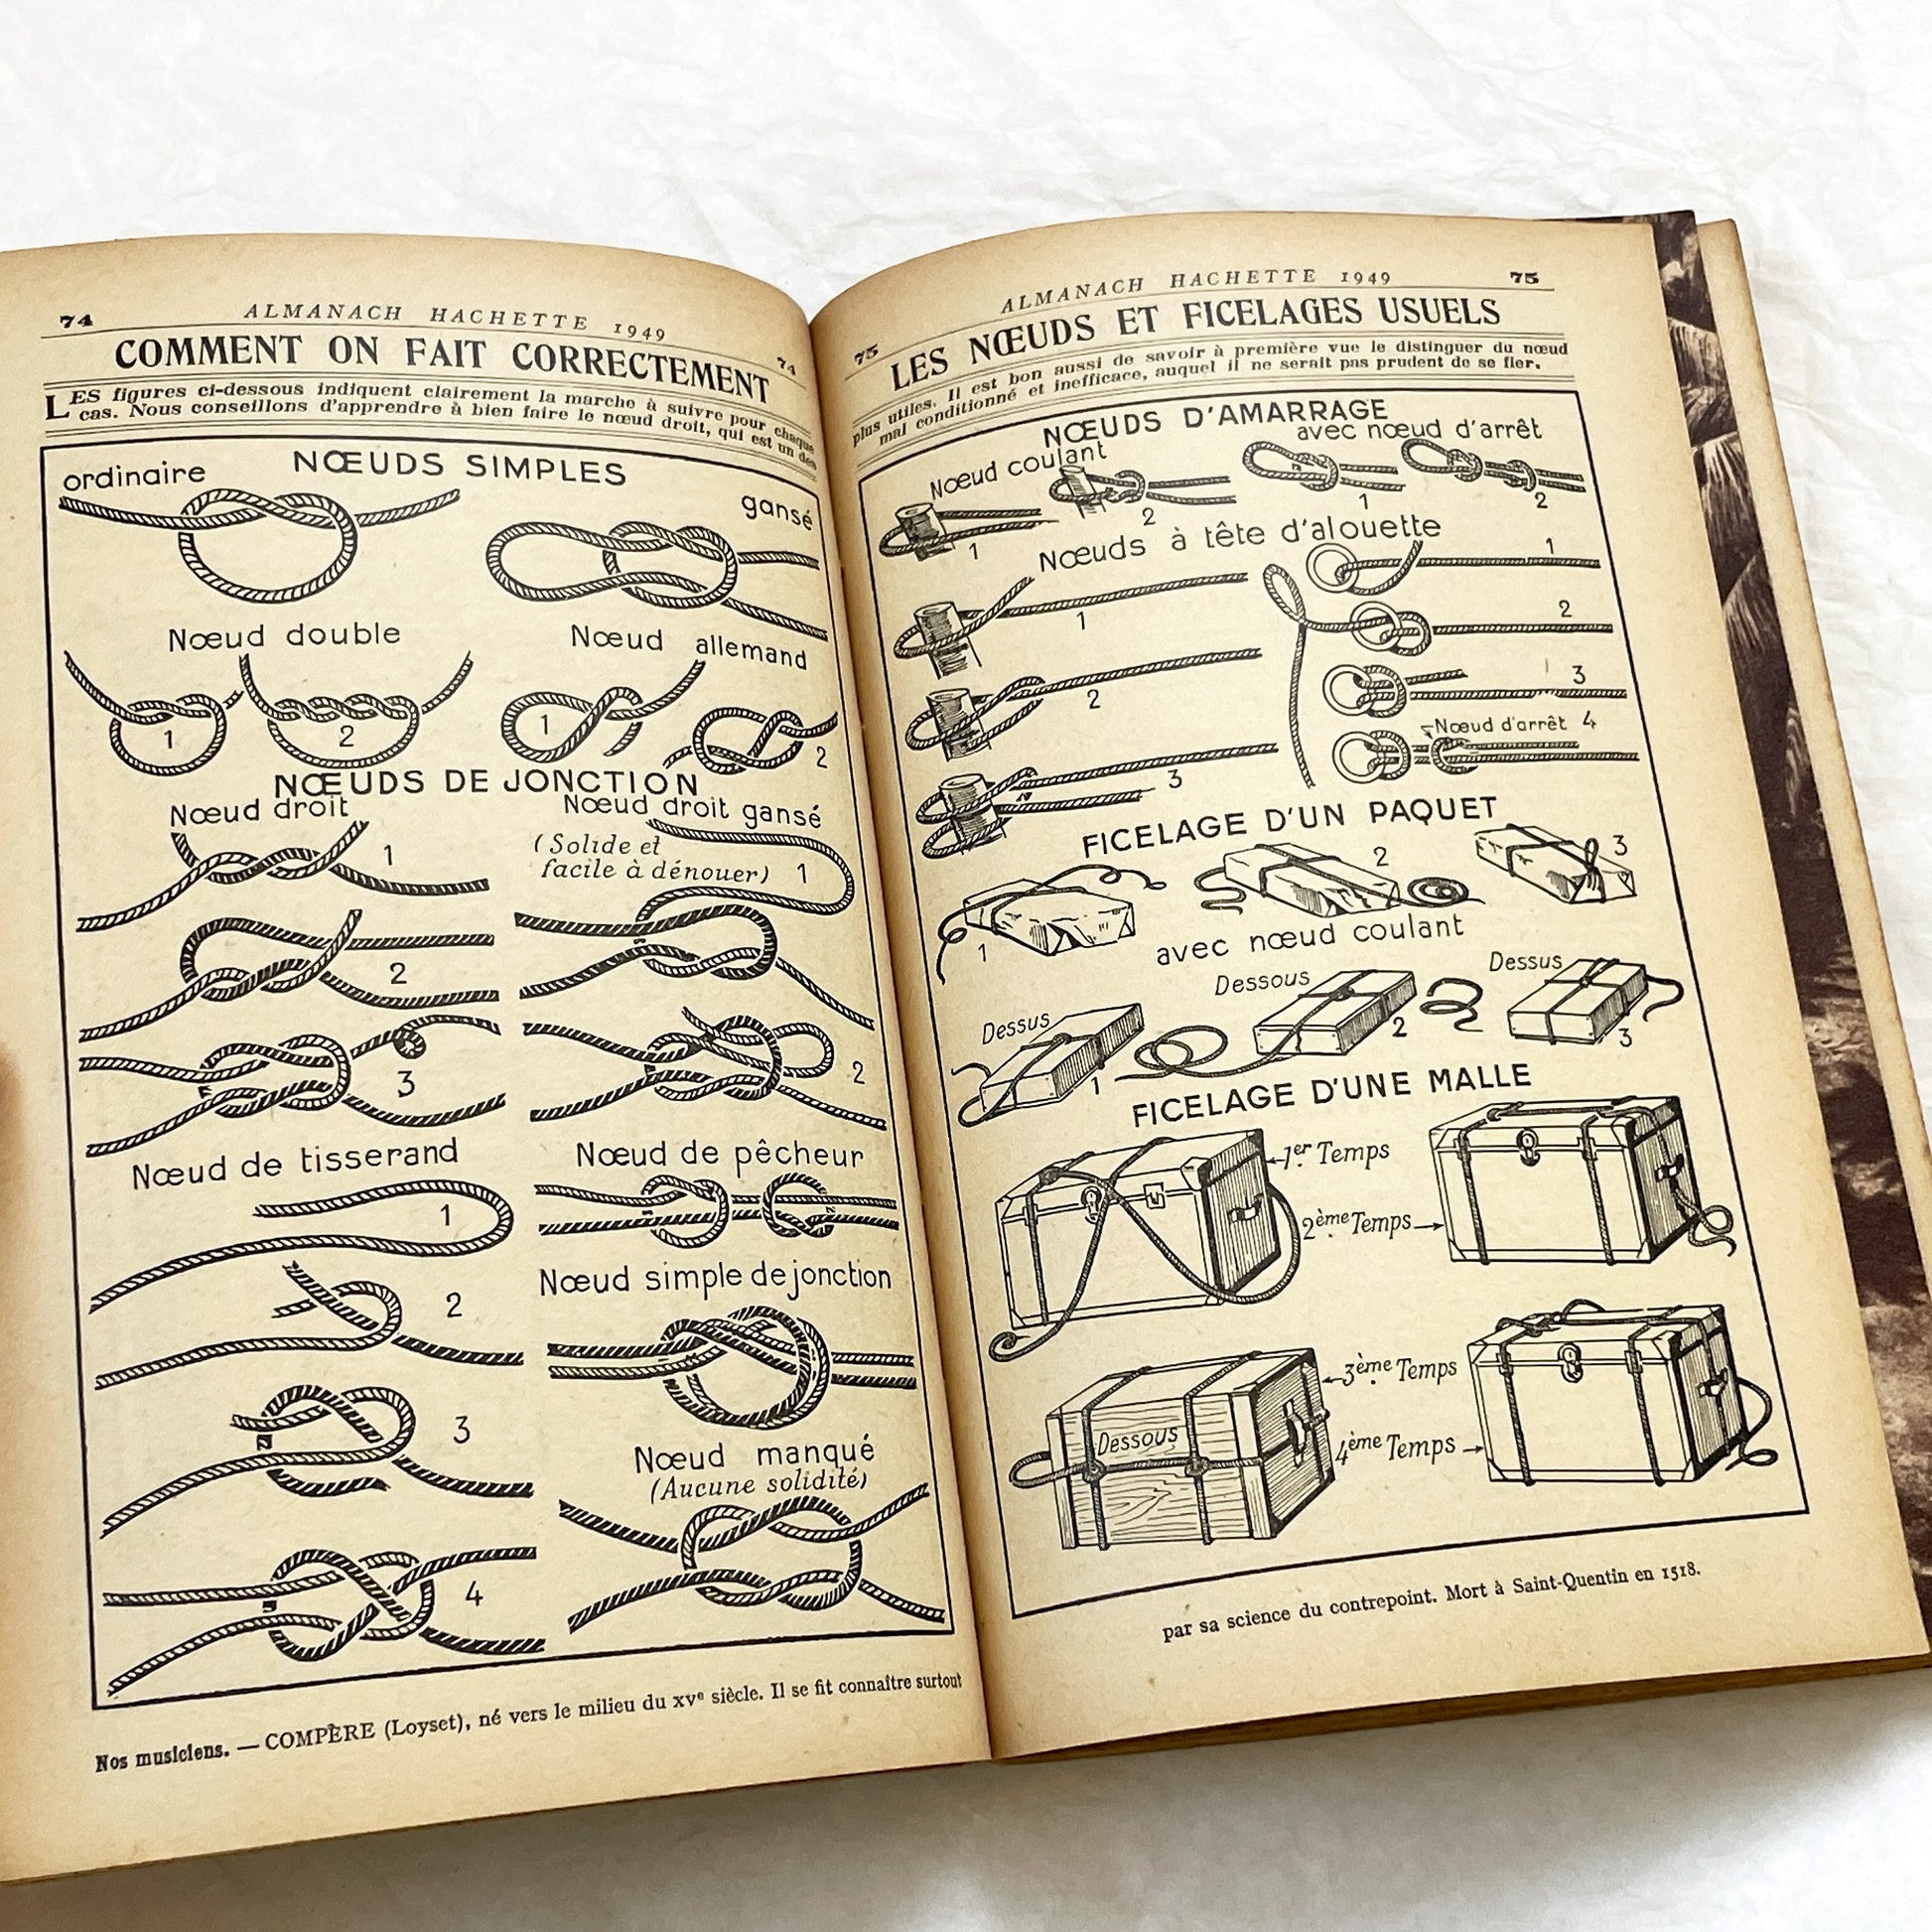 74
ALMANACH HACHETTE 1949
COMMENT ON FAIT CORRECTEMENT
74
LES figures ci-dessous indiquent clairement la marche à suivre pour chaque
cas. Nous conseillons d'apprendre à bien faire le nœud droit, qui est un des
NŒUDS SIMPLES
ordinaire
gansé
Nœud double
Nœud allemand
1
2
1
2
NŒUDS DE JONCTION
Nœud droit
Nœud droit gansé
(Solide et
facile à dénouer)
1
1
2
3
2
Nœud de tisserand
Nœud de pêcheur
1
Nœud simple de jonction
2
3
Nœud manqué
(Aucune solidité)
4
Nos musiciens. — COMPÈRE (Loyset), né vers le milieu du XVe siècle. Il se fit connaître surtout
ALMANACH HACHETTE 1949
75
75
LES NŒUDS ET FICELAGES USUELS
plus utiles. Il est bon aussi de savoir à première vue le distinguer du nœud
mal conditionné et inefficace, auquel il ne serait pas prudent de se fier.
NŒUDS D'AMARRAGE
Nœud coulant
avec nœud d'arrêt
1
2
1
2
Nœuds à tête d'alouette
1
2
3
1
2
3
Nœud d'arrêt 4
FICELAGE D'UN PAQUET
1
2
3
avec nœud coulant
Dessus
1
Dessous
2
Dessus
3
FICELAGE D'UNE MALLE
1er Temps
2ème Temps
3ème Temps
Dessous
4ème Temps
par sa science du contrepoint. Mort à Saint-Quentin en 1518.